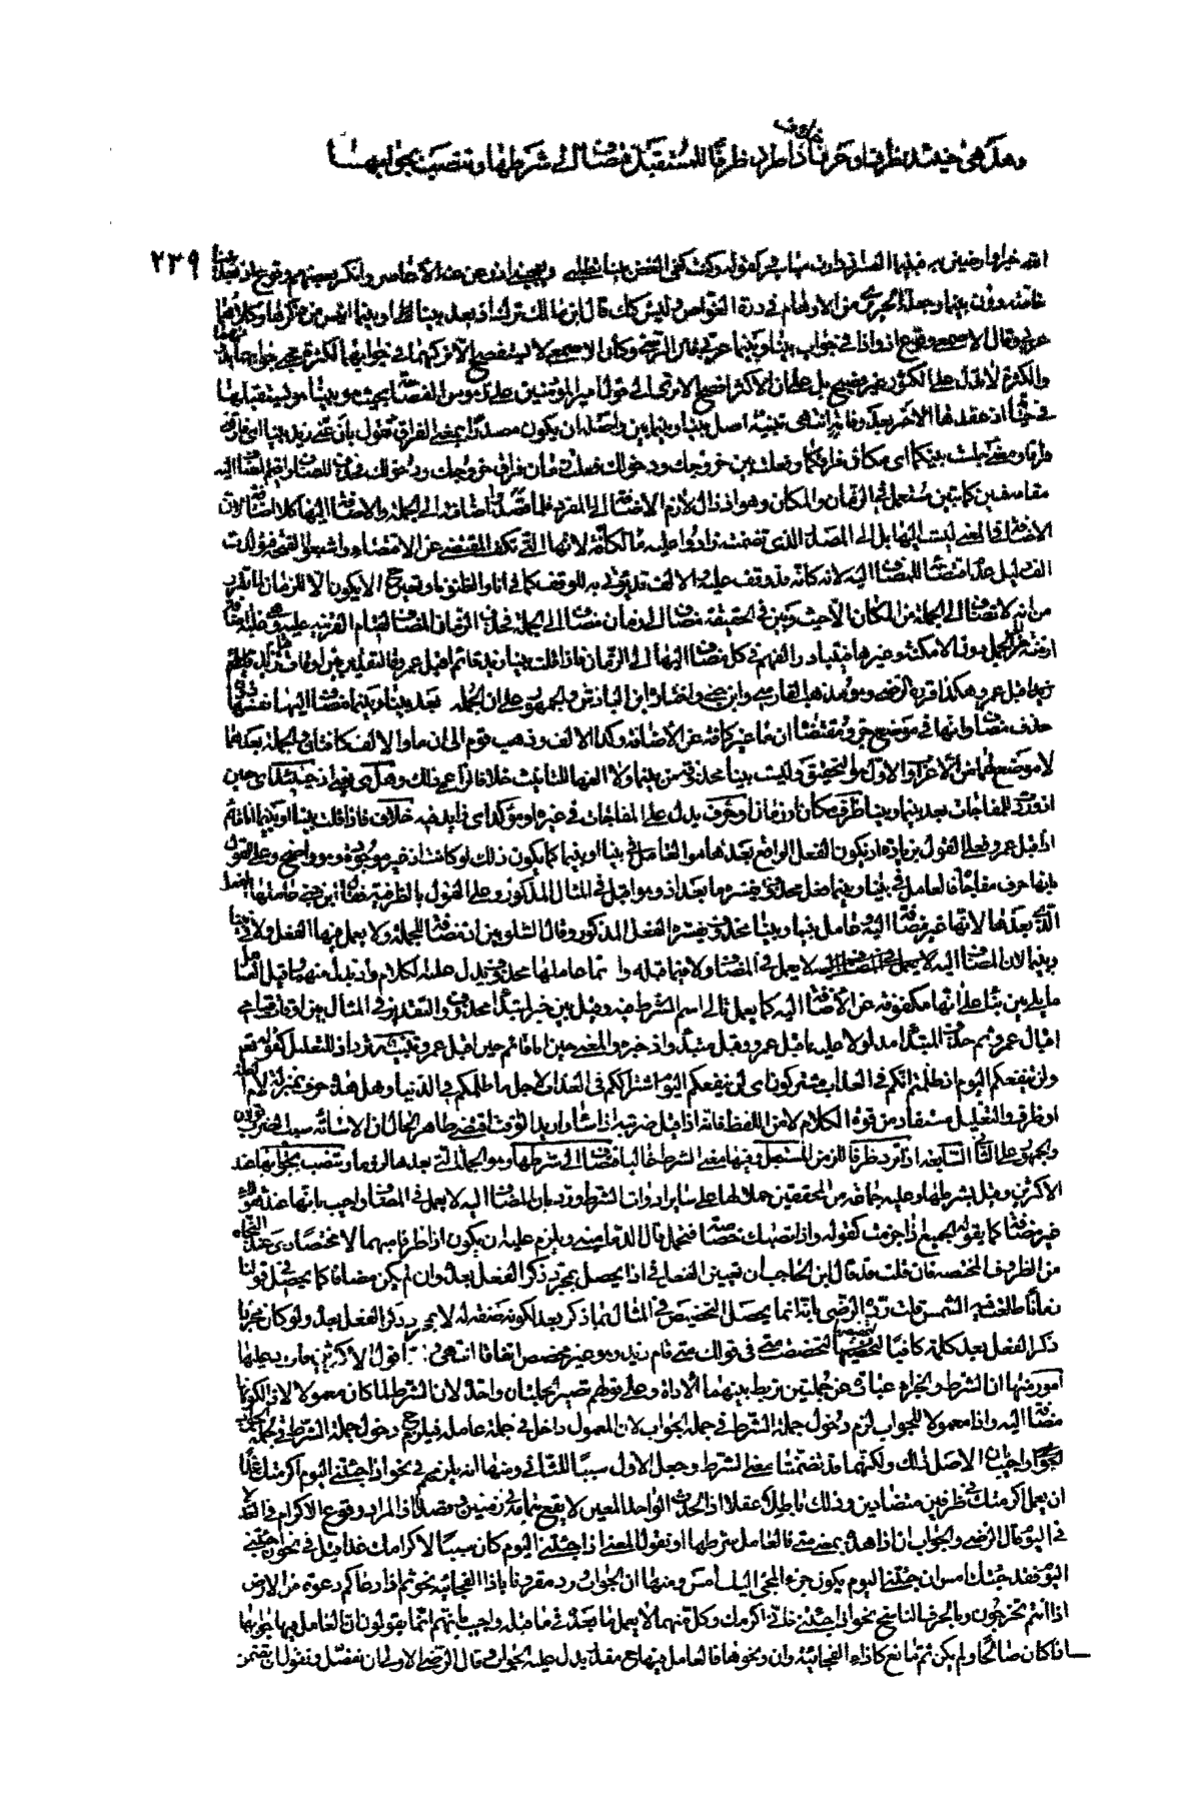 وهل هي حينئذ ظرف او حرف خلاف اذا طرد ظرفا للمستقبل مضاف الى شرطها وتنصب بجوابها
٢٣٩
الله خيرا وارضين به فبينما العسر اذ دارت مياسير كقوله وكنت كفى الغصن بينا
بينما وجعله الحريري من الاوهام في درة الغواص وليس كذلك قال ابن مالك ترك اذ بعد بينا وبينما اقيس من ذكرها وكلاهما
عربي وقال الاصمعي وقوع اذ واذا في جواب بينا وبينما عربي قال الرضي وكان الاصمعي لا يستفصح الا تركهما في جوابهما لكثرة مجيء جوابهما بدونهما
والكثرة لا تدل على المكثور غير فصيح بل على ان الاكثر افصح الا ترى الى قول امير المؤمنين علي وهو من الفصاحة بحيث هو بينا هو يستقيلها
في حياته اذ عقدها لآخر بعد وفاته انتهى تنبيه اصل بينا وبينما بين واصله ان يكون مصدرا بمعنى الفراق تقول
جلست بينكما اى مكان فراقكما وفعلت بين خروجك ودخولك اى زمان فراق خروجك ودخولك فحذف المضاف واقيم المضاف اليه
مقامه فبين كما تبين مستعمل في الزمان والمكان وهو اذ ذاك لازم الاضافة الى المفرد فلما قصد اضافته الى الجملة والاضافة اليها كلا اضافة
الاضافة في المعنى ليست اليها بل الى المصدر الذي تضمنته زادوا عليه ما الكافة لانها التي تكف المقتضى عن الاقتضاء واشبعوا الفتحة فتولدت
الف ليكون الالف دليل عدم اقتضائه للمضاف اليه لانه كانه قد وقف عليه والالف قد يؤتى به للوقف كما في انا والظنونا وتعين حينئذ الا يكون الا للزمان لما تقرر
من انه لا يضاف الى الجملة من المكان الا حيث وبين في الحقيقة مضاف الى زمان مضاف الى الجملة فحذف الزمان المضاف لقيام القرينة عليه
الى الجمل دون الامكنة وغيرها فيتبادر الفهم في كل مضاف اليها الى الزمان فاذا قلت بينا زيد قائم اقبل عمرو فالتقدير بين اوقات قيام
زيد اقبل عمرو هكذا قرره الرضي وهو مذهب الفارسي وابن جني واختاره ابن الباذش والجمهور على ان الجملة بعد بينا وبينما مضاف اليها نفسها دون
حذف مضاف وانها في موضع جر ومقتضاه ان ما غير كافة عن الاضافة وكذا الالف وذهب قوم الى ان ما والالف كافتان والجملة بعدهما
لا موضع لها من الاعراب والاول هو التحقيق وليست بينا محذوفة من بينما ولا الفها للتانيث خلافا لزاعمي ذلك وهل هي يعني اذ حينئذ اى حين
اذ ترد للمفاجات بعد بينما وبينا ظرف مكان او زمان او حرف يدل على المفاجات في غيره او مؤكد اى زايد فيه خلاف فاذا قلت بينا او بينما انا قائم
اذ اقبل عمرو فعلى القول بزيادة اذ يكون الفعل الواقع بعدها هو العامل في بينا او بينما كما يكون ذلك لو كانت اذ غير موجودة وهو واضح وعلى القول
بانها حرف مفاجاة فالعامل في بينا وبينما فعل محذوف يفسره ما بعد اذ وهو اقبل في المثال المذكور وعلى القول بالظرفية فقال ابن جني عاملها الفعل
الذي بعدها لانها غير مضافة اليه وعامل بينما وبينا محذوف يفسره الفعل المذكور وقال الشلوبين اذ مضافة للجملة ولا يعمل فيها الفعل ولا في بينا
وبينما لان المضاف اليه لا يعمل في المضاف ولا فيما قبله وانما عاملها محذوف يدل عليه الكلام واذ بدل منهما وقيل العامل
ما يلي بين بناء على انها مكفوفة عن الاضافة اليه كما يعمل تالى اسم الشرط فيه وقيل بين خبر لمبتدا محذوف والتقدير في المثال بين اوقات قيامي
اقبال عمرو ثم حذف المبتدا مدلولا عليه باقبل عمرو وقيل مبتدا واذ خبره والمعنى حين انا قائم حين اقبل عمرو تنبيه ترد اذ للتعليل كقوله تعالى
ولن ينفعكم اليوم اذ ظلمتم انكم في العذاب مشتركون اى لن ينفعكم اليوم اشتراككم في العذاب لاجل ظلمكم في الدنيا وهل هذه حرف بمنزلة لام العلة
او ظرف والتعليل مستفاد من قوة الكلام لا من اللفظ فانه اذا قيل ضربته اذ اساء واريد الوقت اقتضى ظاهر الحال ان الاساءة سبب الضرب قولان
والجمهور على الثاني السابعة اذا ترد ظرفا للزمن المستقبل وفيها معنى الشرط غالبا مضاف الى شرطها وهو الجملة التي بعدها لزوما وتنصب بجوابها عند
الاكثرين وقيل بشرطها وعليه جماعة من المحققين حملا لها على سائر ادوات الشرط ورد بان المضاف اليه لا يعمل في المضاف واجيب بانها عند هؤلاء
غير مضافة كما يقوله الجميع اذا جزمت كقوله واذا تصبك خصاصة فتحمل قال الدماميني ويلزم عليه ان يكون اذا ظرفا مبهما لا مختصا وهى عند النحاة
من الظروف المختصة فان قلت قد قال ابن الحاجب ان تعيين الفعل في اذا يحصل بمجرد ذكر الفعل بعده وان لم يكن مضافا كما يحصل في قولنا
زمانا طلعت فيه الشمس قلت رده الرضي بانه انما يحصل التخصيص في المثال بما ذكر بعده لكونه صفة له لا بمجرد ذكر الفعل بعده ولو كان مجرد
ذكر الفعل بعد كلمة كافيا لتخصيصها لتخصصت متى في قولك متى قام زيد وهو غير مخصص اتفاقا انتهى اقول الاكثرين ما يرد عليها
امور منها ان الشرط والجزاء عبارة عن جملتين تربط بينهما الاداة وعلى قولهم تصير الجملتان واحدة لان الشرط لما كان معمولا لاذا لكونها
مضافا اليه واذا معمولا للجواب لزم دخول جملة الشرط في جملة الجواب لان المعمول داخل في جملة عامله فيلزم ح دخول جملة الشرط في جملة
الجواب واجيب بان الاصل ذلك ولكن لما تضمنت معنى الشرط وجعل الاول سببا للثاني ومنها انه يلزمهم في نحو اذا جئتني اليوم اكرمتك غدا
ان يعمل اكرمتك في ظرفين متضادين وذلك باطل عقلا اذ الحدث الواحد المعين لا يقع بتمامه في زمنين وقصدا اذ المراد وقوع الاكرام في الغد لا
في اليوم قال الرضي والجواب ان اذا هذه بمعنى متى فالعامل شرطها او نقول المعنى اذا جئتني اليوم كان سببا لاكرامك غدا كما قيل في نحو ان جئتني
اليوم فقد جئتك امس ان جئتني اليوم يكون جزاء لمجئي اليك امس ومنها ان الجواب ورد مقرونا باذا الفجائية نحو ثم اذا دعاكم دعوة من الارض
اذا انتم تخرجون وبالحرف الناسخ نحو اذا جئتني فاني اكرمك وكل منهما لا يعمل ما بعده في ما قبله واجيب بانهم انما يقولون ان العامل فيها جوابها
اذا كان صالحا ولم يكن ثم مانع كاذا الفجائية وان ونحوها فالعامل فيها ح مقدر يدل عليه الجواب قال الرضي الاولى ان نفصل ونقول ان تضمن